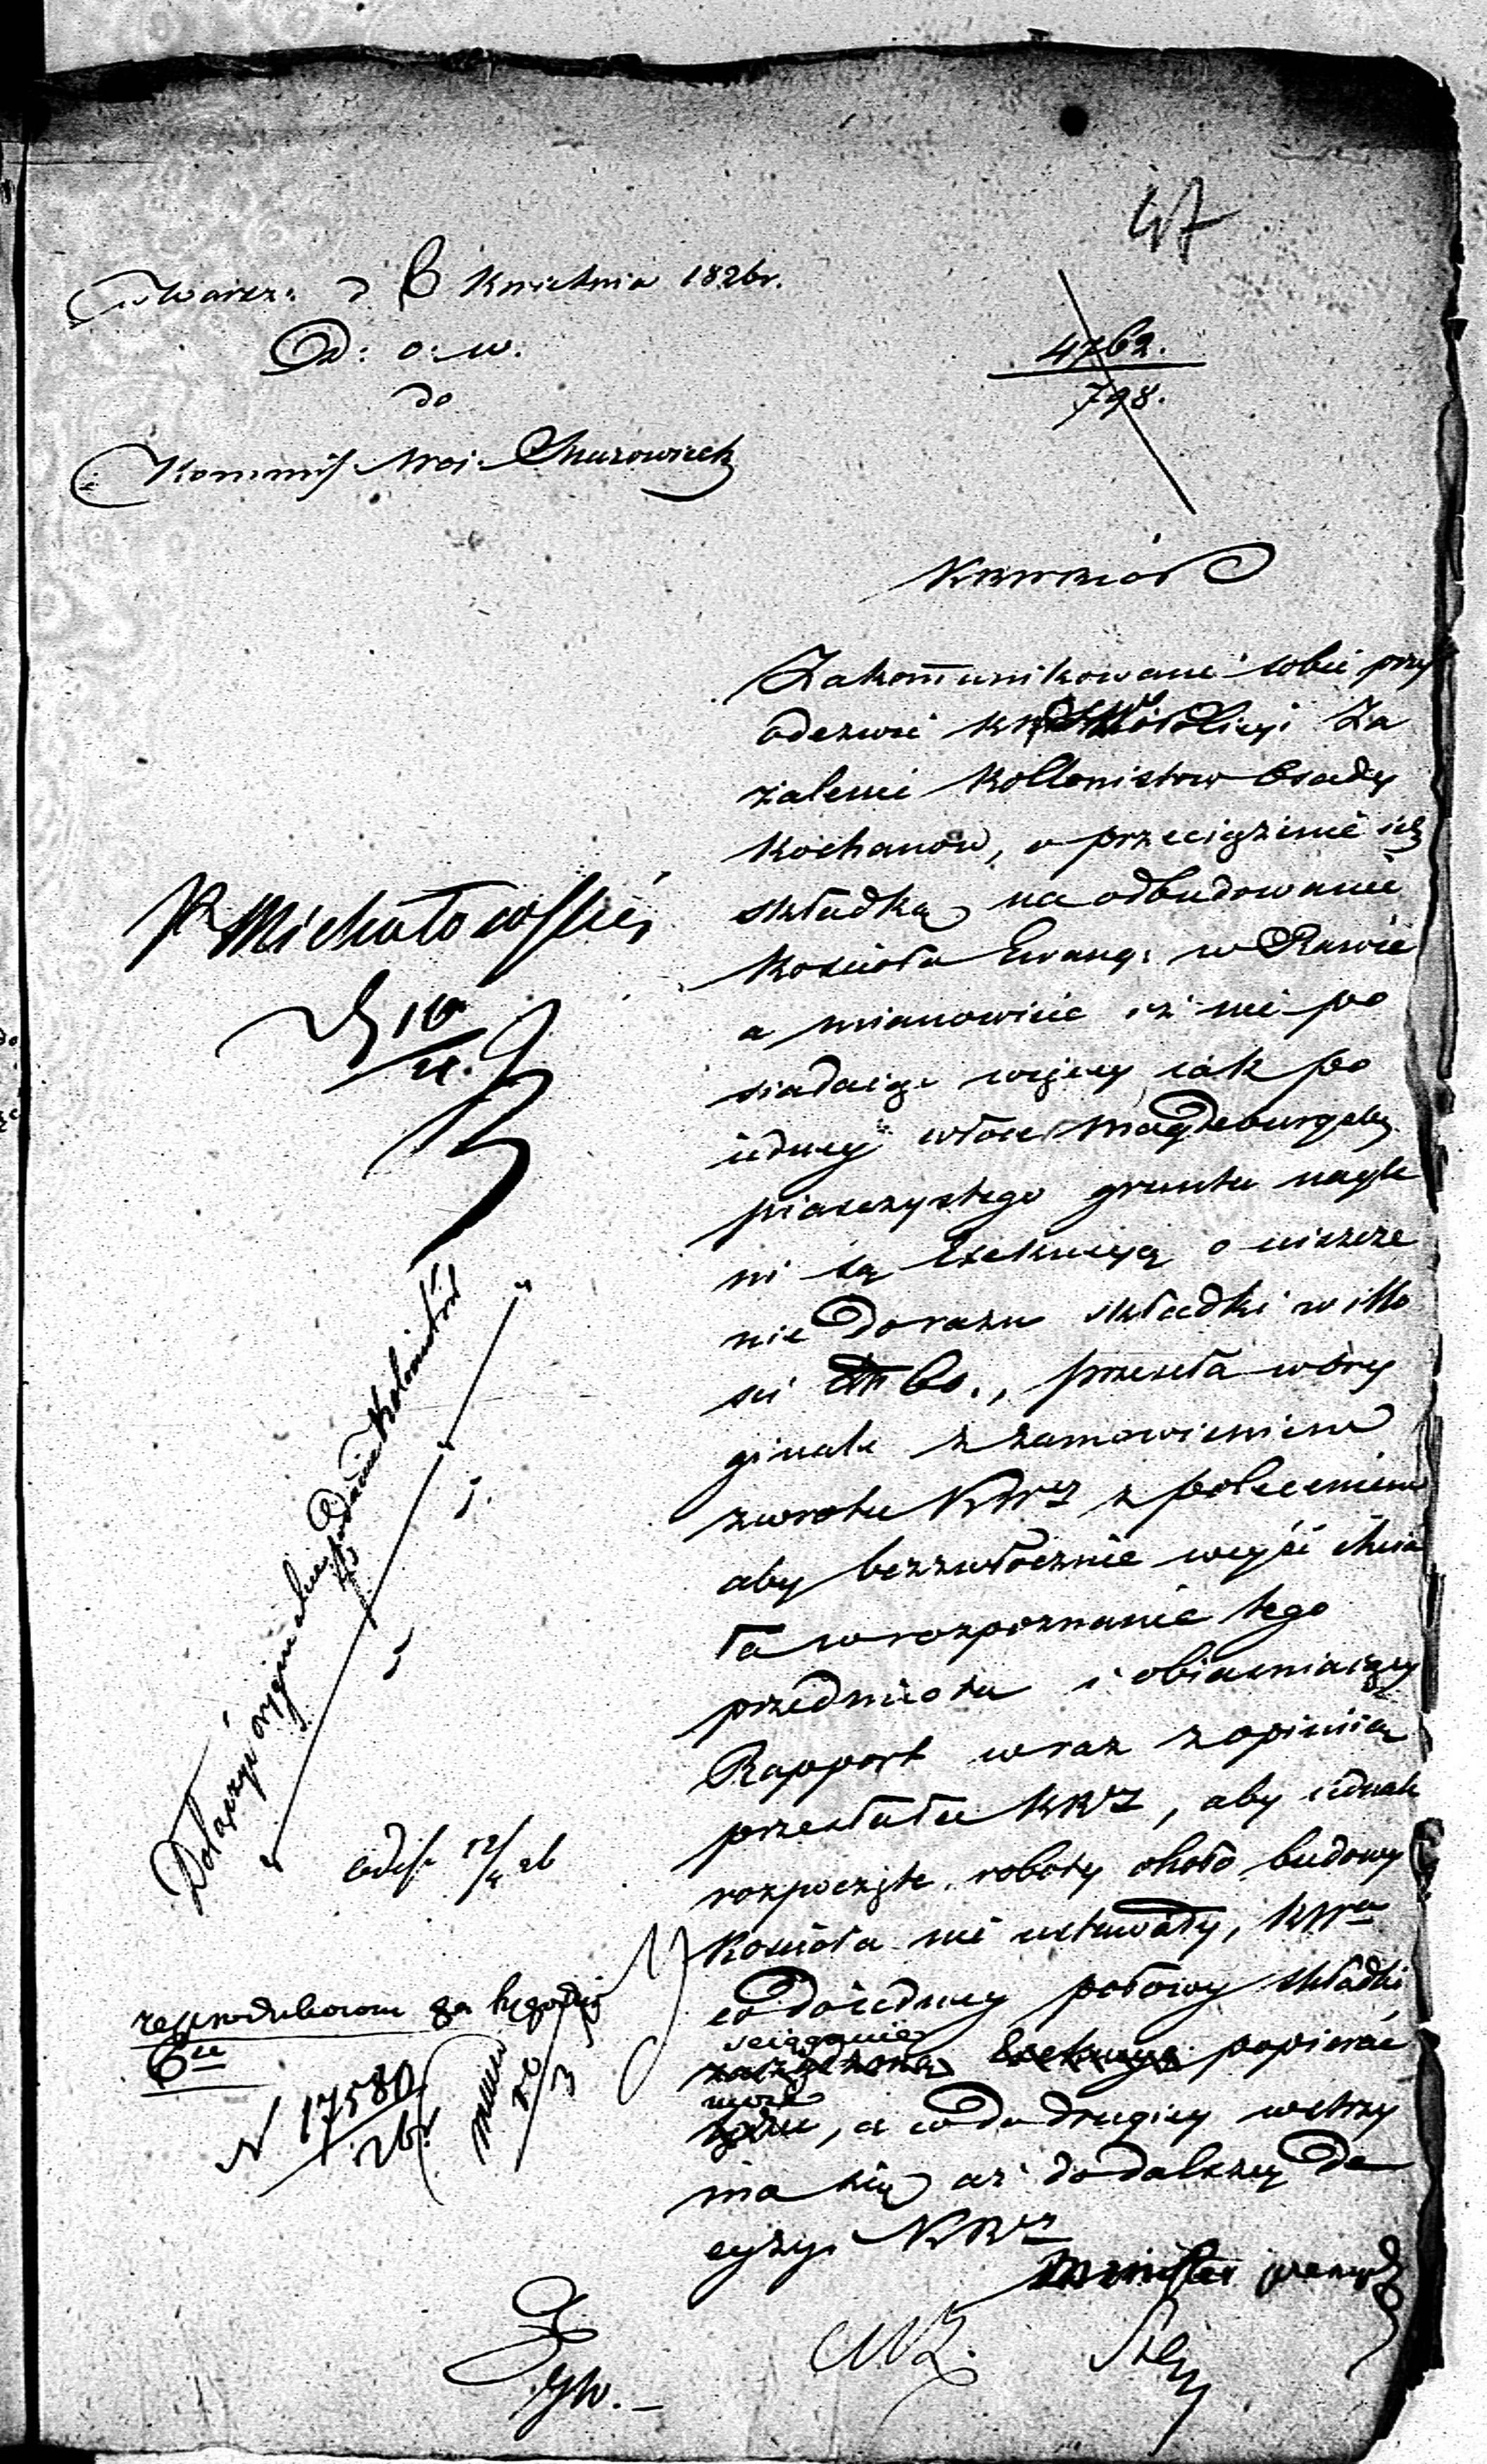 47
w Warsz: d 6 Kwietnia 1826 r.
Wd: o: w.
do
Kommiss Woi Mazowieck
4762.
798.
Zakommunikowane sobie przy
odezwie Policyi Za
żalenie Kollonistow Osady
Kochanow, o przeciążenie ich
składką na odbudowanie
Kościoła Ewang: w Rawie
a mianowicie iż nie po
siadaiąc więcey iak po
iedney włoce Magdeburgskiey
piasczystego gruntu nagle
ni są Exekucyą o uiszcze
nie dorazu składki w illo
ści 60., przesyła w ory
ginale z zamowieniem
zwrotu z poleceniem
aby bezzwłocznie weyść chcia
ła w rozpoznanie tego
przedmiotu i obiaśniaiący
Rapport wraz z opiniią
przesłała KRWZ, aby iednak
rozpoczęte roboty około budowy
Kościoła nie ustawały, KWa
co do iedney połowy składki
ściąganie popierać
może, a co do drugiey wstrzy
ma się aż do dalszey de
cyzyi KRWZ
Minister prezyd
P. Michałowski
16
4.
Dołączyć oryginalne podanie Kolonistów
12/4 26
reprodukowane za tygodni
6ść
N 17580
26